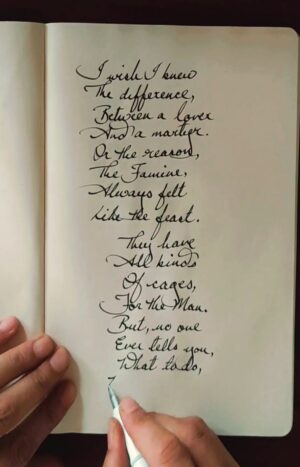 I wish I knew
The difference,
Between a lover
And a martyr.
Or the reason,
The Famine,
Always felt
Like the feast.
They have
All kinds
Of cages,
For the Man.
But, no one
Ever tells you,
What to do,